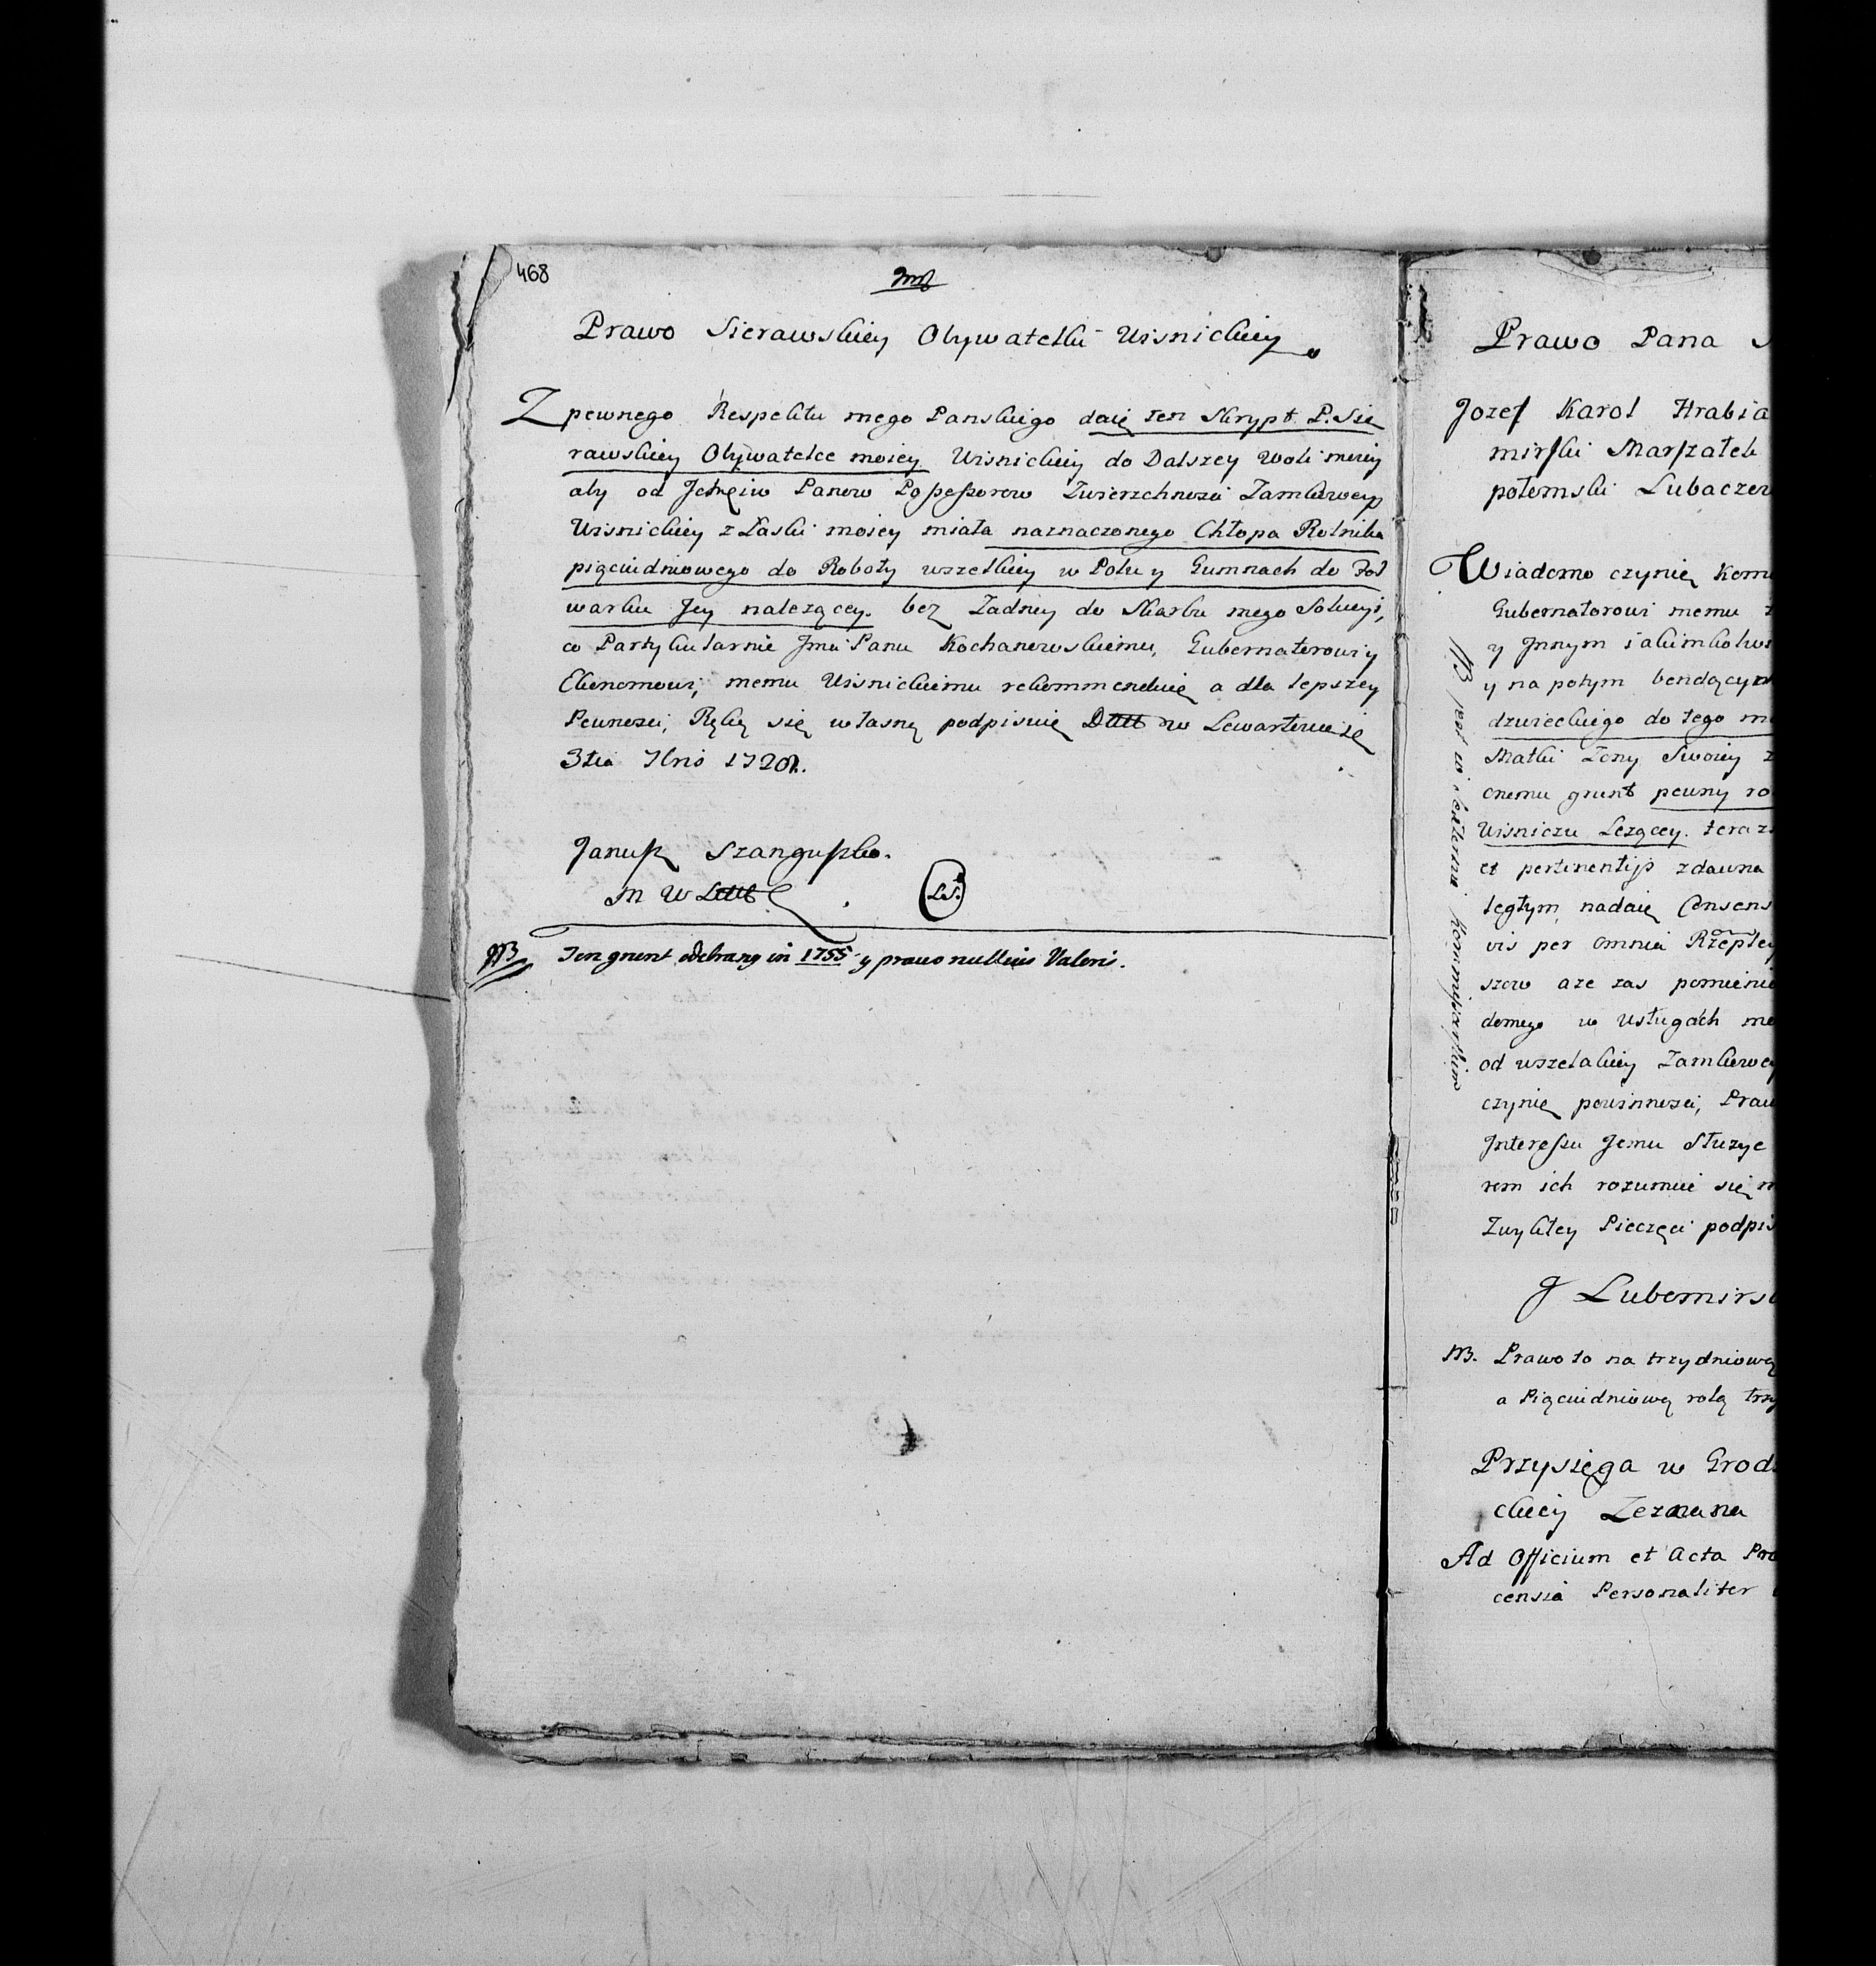 468
Prawo Sierawskiey Obywatelki Wisnickiey
Z pewnego Respektu mego Panskiego daię ten Skrypt P. Sie
rawskiey Obywatelce moiey Wisnickiey do Dalszey woli moiey
aby od Ichmciow Panow Possessorow Zwierzchnosci Zamkowey
Wisnickiey z Łaski moiey miała naznaczonego Chłopa Rolnika
pięciudniowego do Roboty wszelkiey w Polu y Gumnach do Fol
warku Jey nalezącey. bez Zadney do Skarbu mego Solucyi,
co Partykularnie Jmci Panu Kochanowskiemu, Gubernatorowi y
Ekonomowi, memu Wisnickiemu rekommenduię a dla lepszey
Pewnosci, Ręką się własną podpisuię Dttt w Lewartowie
3tia Xbris 1720.
Janusz Szanguszko.
M W Lttt
L.S.
NB Ten grunt odebrany in 1755 y prawo nullius Valoris.
Prawo Pana
Jozef Karol Hrabia
mirski Marszałek
potomski Lubaczew
Wiadomo czynię Komu
Gubernatorowi memu
y Jnnym iakimkolwi
y na potym bendącym
dzwieckiego do tego
Matki Zony Swoiey
cnemu grunt pewny ro
Wisniczu Lezącey. teraz
et pertinentijs zdawna
ległym nadaię Consens
vis per omnia Rzeptey
szow aze zas pomieni
domego w Usługach
od wszelakiey Zamkowey
czynię powinnosci, Praw
Jnteressu Jemu Słuzyc
rem ich rozumie się
Zwykłey Pieczęci podpis
J Lubomirs
NB. Prawo to na trzydniową
a Pięciudniową rolą trzy
Przysięga w Grod
ckiey Zeznana
Ad Officium et Acta
censia Personaliter
NB jest w